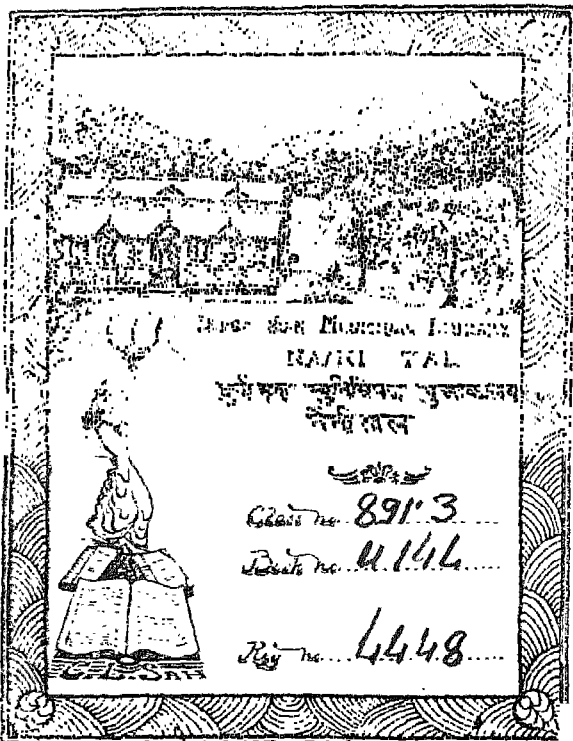 DURGA SAH MUNICIPAL LIBRARY
NAINI TAL
दुर्गा साह म्युनिसिपल पुस्तकालय
नैनी ताल
Class no. 891.3
Book no.
Reg no. 4448
C. L. SAH